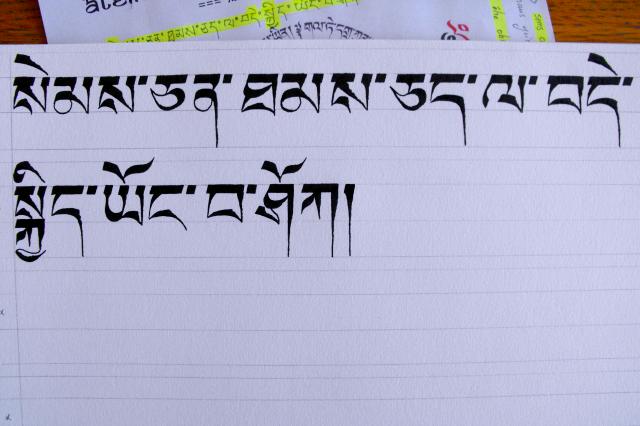 སེམས་ཅན་ཐམས་ཅད་ལ་བདེ་
སྐྱིད་ཡོང་བ་ཤོག།